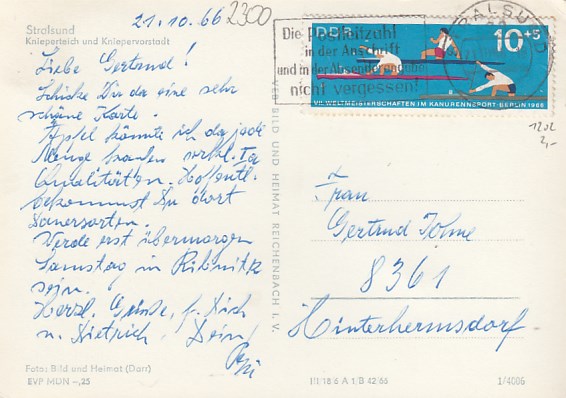 21.10.66 2300
Stralsund
Knieperteich und Kniepervorstadt
Liebe Gertrud!
Schicke Dir da eine sehr
schöne Karte.
Äpfel könnte ich da jede
Menge haben
Qualitäten. Hoffentl.
bekommst Du dort
Dauersorten.
Werde erst übermorgen
Samstag in Ribnitz
sein.
Herzl. Grüße, f. Dich
u. Dietrich, Dein
Foto: Bild und Heimat (Darr)
EVP MDN –,25
VEB BILD UND HEIMAT REICHENBACH I. V.
STRALSUND
Die Postleitzahl
in der Anschrift
und in der Absenderangabe
nicht vergessen!
DDR 10+5
VII. WELTMEISTERSCHAFTEN IM KANURENNSPORT · BERLIN 1966
1202
2,-
Frau
Gertrud
8361
Hinterhermsdorf
III/18/6 A 1/B 42/66
1/4006